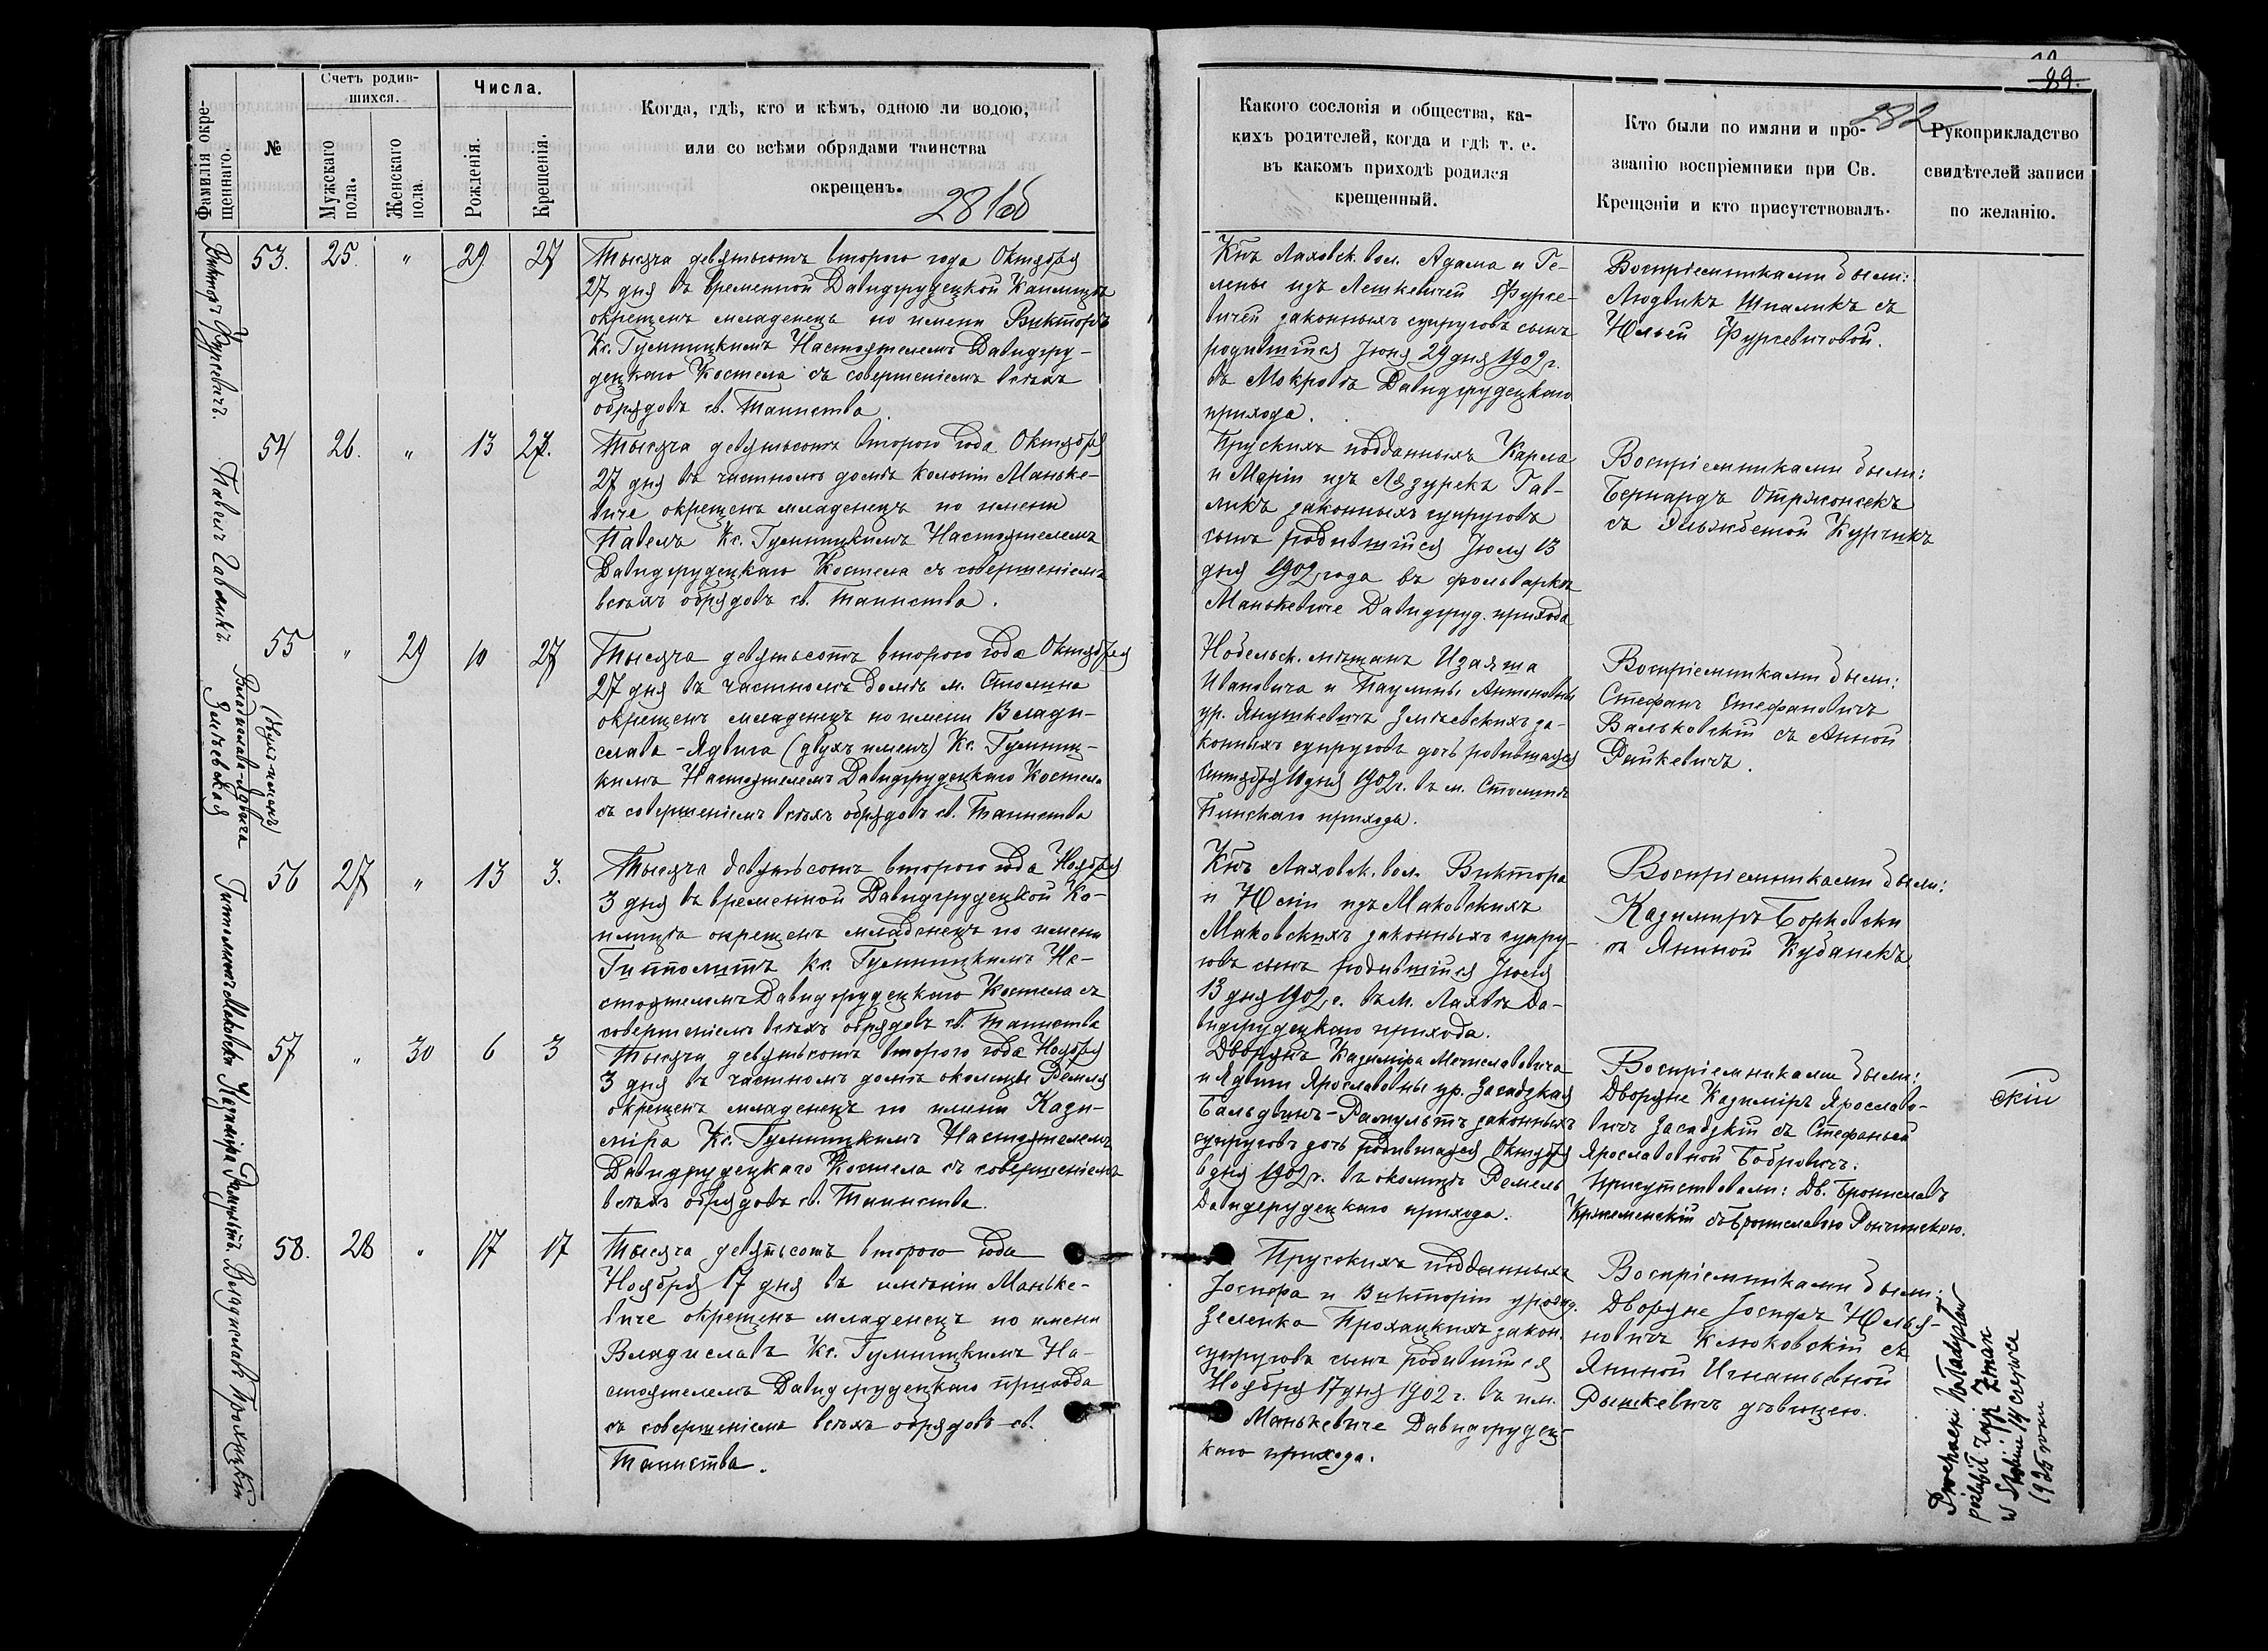 Фамилія окре-
щеннаго.
№
Счетъ родив-
шихся.
Мужскаго
пола.
Женскаго
пола.
Числа.
Рожденія.
Крещенія.
Когда, гдѣ, кто и кѣмъ, одною ли водою,
или со всѣми обрядами таинства
окрещенъ.
281об
Викторъ Фурсевичъ.
53. 25. " 29 27
Тысяча девятьсотъ второго года Октября
27 дня въ временной Давидгрудецкой Каплицѣ
окрещенъ младенецъ по имени Викторъ
Кс. Гумницкимъ Настоятелемъ Давидгру-
децкаго Костела съ совершеніемъ всѣхъ
обрядовъ св. Таинства.
Павелъ Гавликъ.
54 26. " 13 27.
Тысяча девятьсотъ второго года Октября
27 дня въ частномъ домѣ колоніи Маньке-
виче окрещенъ младенецъ по имени
Павелъ Кс. Гумницкимъ Настоятелемъ
Давидгрудецкаго Костела съ совершеніемъ
всѣхъ обрядовъ св. Таинства.
(двухъ именъ)
Владислава-Ядвига
Змѣевская
55 " 29 10 27
Тысяча девятьсотъ второго года Октября
27 дня въ частномъ домѣ м. Столина
окрещенъ младенецъ по имени Влади-
слава-Ядвига (двухъ именъ) Кс. Гумниц-
кимъ Настоятелемъ Давидгрудецкаго Костела
съ совершеніемъ всѣхъ обрядовъ св. Таинства
Гипполитъ Маковски
56 27 " 13 3.
Тысяча девятьсотъ второго года Ноября
3 дня въ временной Давидгрудецкой Ка-
плицѣ окрещенъ младенецъ по имени
Гипполитъ Кс. Гумницкимъ На-
стоятелемъ Давидгрудецкаго Костела съ
совершеніемъ всѣхъ обрядовъ св. Таинства
Казиміра Рамультъ.
57 " 30 6 3
Тысяча девятьсотъ второго года Ноября
3 дня въ частномъ домѣ околицы Ремля
окрещенъ младенецъ по имени Кази-
міра Кс. Гумницкимъ Настоятелемъ
Давидгрудецкаго Костела съ совершеніемъ
всѣхъ обрядовъ св. Таинства.
Владиславъ Прохацкій
58. 28 " 17 17
Тысяча девятьсотъ второго года
Ноября 17 дня въ имѣніи Маньке-
виче окрещенъ младенецъ по имени
Владиславъ Кс. Гумницкимъ На-
стоятелемъ Давидгрудецкаго прихода
съ совершеніемъ всѣхъ обрядовъ св.
Таинства.
89.
282
Какого сословія и общества, ка-
кихъ родителей, когда и гдѣ т. е.
въ какомъ приходѣ родился
крещенный.
Кто были по имяни и про-
званію воспріемники при Св.
Крещеніи и кто присутствовалъ.
Рукоприкладство
свидѣтелей записи
по желанію.
Кнъ Лаховск. вол. Адама и Ге-
лены изъ Лешкевичей Фурсе-
вичей законныхъ супруговъ сынъ
родившійся Іюня 29 дня 1902 г.
въ Мокровѣ Давидгрудецкаго
прихода.
Воспріемниками были:
Людвикъ Шпаликъ съ
Юльей Фурсевичовой.
Прускихъ подданныхъ Карла
и Маріи изъ Лязурекъ Гав-
ликъ законныхъ супруговъ
сынъ родившійся Іюля 13
дня 1902 года въ фольваркѣ
Манькевиче Давидгруд. прихода
Воспріемниками были:
Бернардъ Отржонсекъ
съ Эльжбетой Курчикъ
Нобельск. мѣщанъ Изаяша
Ивановича и Паулины Антоновны
ур. Янушкевичъ Змѣевскихъ за-
конныхъ супруговъ дочь родившаяся
Сентября 10 дня 1902 г. въ м. Столинѣ
Пинскаго прихода.
Воспріемниками были:
Стефанъ Стефановичъ
Вальковскій съ Анной
Райкевичъ.
Кнъ Лаховск. вол. Виктора
и Юліи изъ Маковскихъ
Маковскихъ законныхъ супру-
говъ сынъ родившійся Іюля
13 дня 1902 г. въ м. Лахвѣ Да-
видгрудецкаго прихода.
Воспріемниками были:
Казимиръ Борковски
съ Яниной Кубанекъ.
Дворянъ Казиміра Мечиславовича
и Ядвиги Ярославовны ур. Засадзкая
Бальдвинъ-Рамультъ законныхъ
супруговъ дочь родившаяся Октября
6 дня 1902 г. въ околицѣ Ремель
Давидгрудецкаго прихода.
Воспріемниками были:
Дворяне Казиміръ Ярославо-
вичъ Засадзкій съ Стефаніей
Ярославовной Бобровичъ.
Присутствовали: Дв. Брониславъ
Кржеменскій съ Брониславою Рончинскою.
скій
Прусскихъ подданныхъ
Іосифа и Викторіи урожд.
Зеленка Прохацкихъ закон.
супруговъ сынъ родившійся
Ноября 17 дня 1902 г. въ им.
Манькевиче Давидгрудец-
каго прихода.
Воспріемниками были:
Дворяне Іосифъ Юлья-
новичъ Клюковскій съ
Яниной Игнатьевной
Рышкевичъ дѣвицею.
Prochacki Władysław
poślubił Zofję Żmak
w Stolinie 14 czerwca
1925 roku